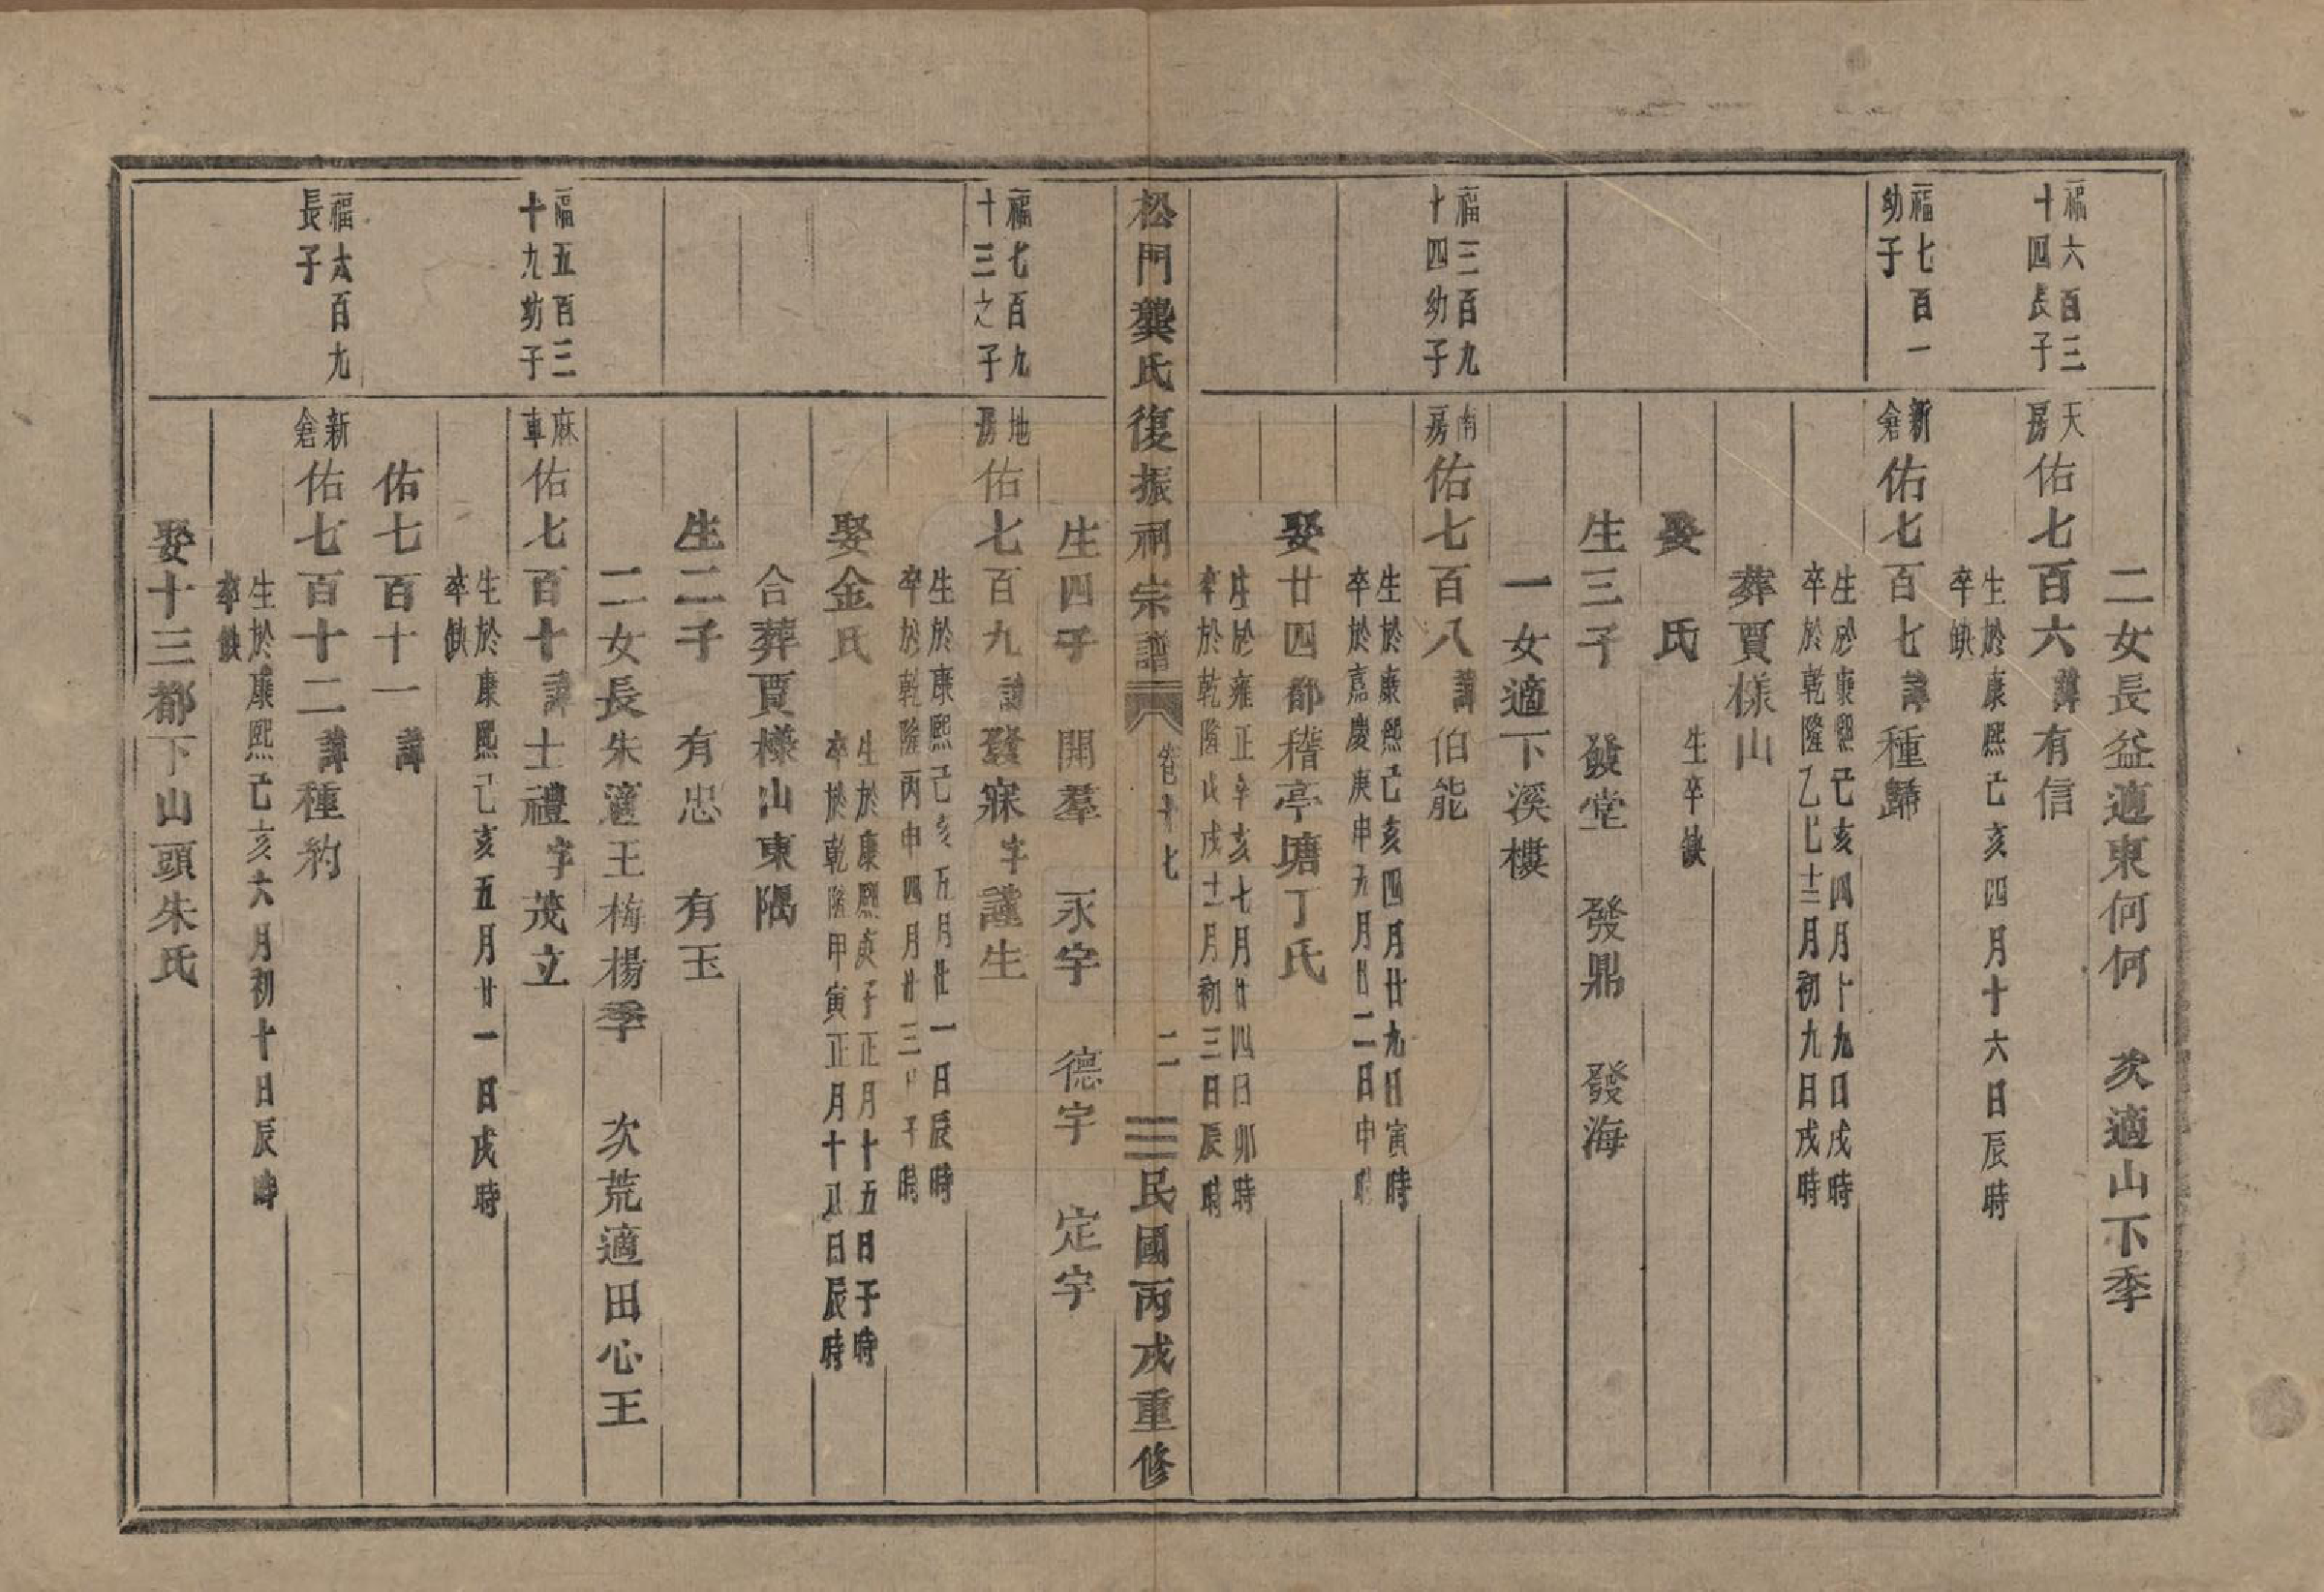 二女長益適東何何　次適山下季
福六百三
十四長子
天
房
佑七百六諱有信
生於康熙己亥四月十六日辰時
卒缺
福七百一
幼子
新
倉
佑七百七諱種歸
生於康熙己亥四月十九日戌時
卒於乾隆乙七十二月初九日戌時
葬賈樣山
娶　氏
生卒缺
生三子　發堂　發鼎　發海
一女適下溪樓
福三百九
十四幼子
南
房
佑七百八諱伯能
生於康熙己亥四月廿九日寅時
卒於嘉慶庚申六月廿二日申時
娶廿四都稽亭塘丁氏
生於雍正辛亥七月廿四日卯時
卒於乾隆戊戌十一月初三日辰時
松門龔氏復振祠宗譜　卷七十七　二　民國丙戌重修
生四子　開羣　永字　德字　定字
福七百九
十三之子
地
房
佑七百九諱發寐字謹生
生於康熙己亥五月廿一日辰時
卒於乾隆丙申四月廿三日午時
娶金氏
生於康熙庚子正月十五日子時
卒於乾隆甲寅正月十八日辰時
合葬賈樣山東隅
生二子　有忠　有玉
二女長朱適王梅楊季　次荒適田心王
福五百三
十九幼子
麻
車
佑七百十諱士禮字茂立
生於康熙己亥五月廿一日戌時
卒缺
佑七百十一諱
福六百九
長子
新
倉
佑七百十二諱種約
生於康熙己亥六月初十日辰時
卒缺
娶十三都下山頭朱氏